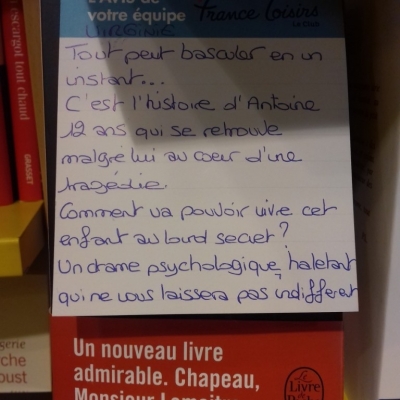 L'AVIS de
votre équipe France Loisirs
VIRGINIE
Tout peut basculer en un
instant...
C'est l'histoire d'Antoine
12 ans qui se retrouve
malgré lui au coeur d'une
tragédie.
Comment va pouvoir vivre cet
enfant au lourd secret?
Un drame psychologique, haletant
qui ne vous laissera pas indifférent
Un nouveau livre
admirable. Chapeau,
Monsieur Lemaitre
Le
Livre
escargot tout chaud
GRASSET